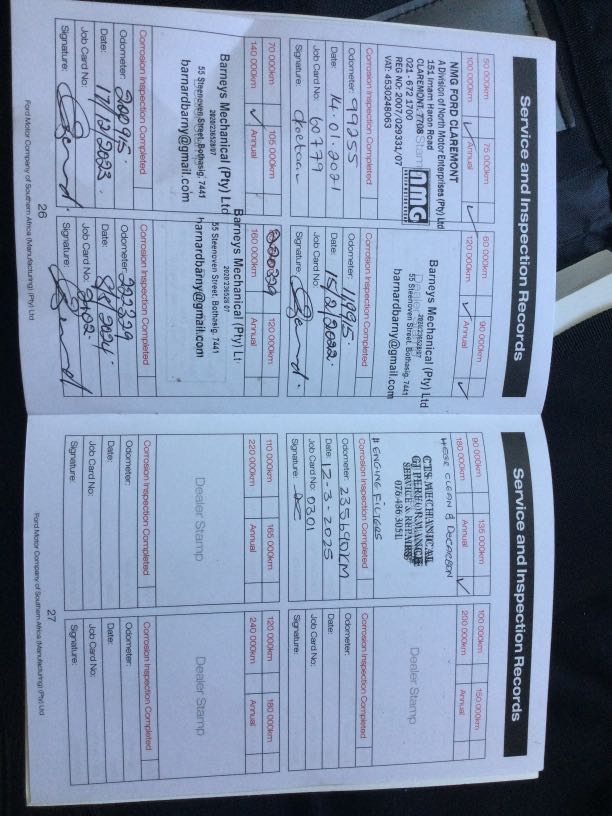 Service and Inspection Records
50 000km 75 000km
100 000km ✓ Annual ✓
NMG FORD CLAREMONT
A Division of North Motor Enterprises (Pty) Ltd
151 Imam Haron Road
CLAREMONT, 7708
021 - 672 1700
REG NO: 2007/029331/07
VAT: 4530248063
nmg
Corrosion Inspection Completed
Odometer: 99255
Date: 14.01.2021
Job Card No: 60779
Signature:
60 000km 90 000km
120 000km ✓ Annual ✓
Barneys Mechanical (Pty) Ltd
55 Steenoven Street, Bothasig, 7441
barnardbarny@gmail.com
Corrosion Inspection Completed
Odometer: 119915.
Date: 15/2/2022.
Job Card No:
Signature:
70 000km 105 000km
140 000km ✓ Annual
Barneys Mechanical (Pty) Ltd
55 Steenoven Street, Bothasig, 7441
barnardbarny@gmail.com
Corrosion Inspection Completed
Odometer: 200915.
Date: 17/2/2023.
Job Card No:
Signature:
120 000km
160 000km Annual
Barneys Mechanical (Pty) Lt
55 Steenoven Street, Bothasig, 7441
barnardbarny@gmail.com
Corrosion Inspection Completed
Odometer: 222329
Date: 8/8/2024.
Job Card No:
Signature:
26
Ford Motor Company of Southern Africa (Manufacturing) (Pty) Ltd
Service and Inspection Records
90 000km 135 000km
180 000km Annual ✓
HOSE CLEAN & DECARBON
CTS MECHANICAL
GT PERFORMANCE
SERVICE & REPAIRS
076 436 3051
Corrosion Inspection Completed
Odometer: 235690KM
Date: 12-3-2025
Job Card No: 0301
Signature:
100 000km 150 000km
200 000km Annual
Dealer Stamp
Corrosion Inspection Completed
Odometer:
Date:
Job Card No:
Signature:
110 000km 165 000km
220 000km Annual
Dealer Stamp
Corrosion Inspection Completed
Odometer:
Date:
Job Card No:
Signature:
120 000km 180 000km
240 000km Annual
Dealer Stamp
Corrosion Inspection Completed
Odometer:
Date:
Job Card No:
Signature:
27
Ford Motor Company of Southern Africa (Manufacturing) (Pty) Ltd